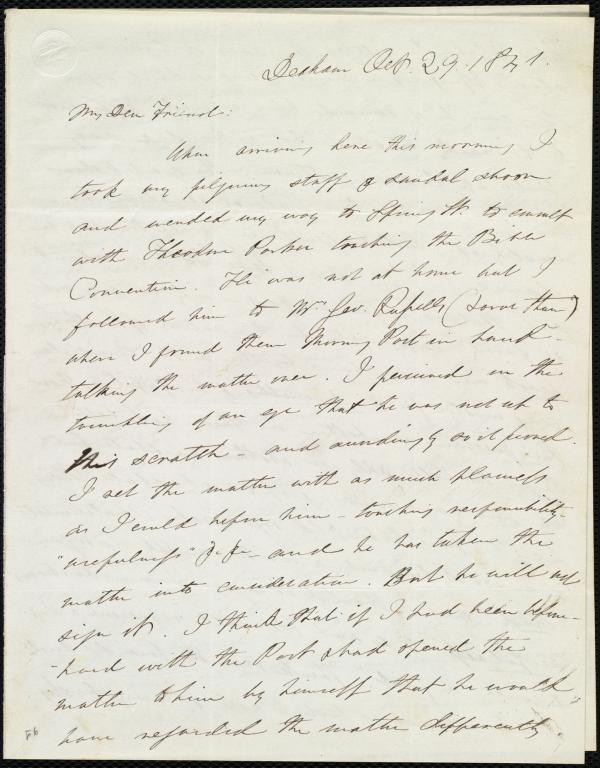 Dedham Oct. 29. 1841.
My Dear Friend:
Upon arriving here this morning I
took my pilgrim's staff & sandal shoon
and wended my way to Spring St. to consult
with Theodore Parker touching the Bible
Convention. He was not at home but I
followed him to Mr. Geo. Russell's
where I found them Morning Post in hand -
talking the matter over. I perceived in the
twinkling of an eye that he was not up to
this scratch - and accordingly so it proved.
I set the matter with as much plainness
as I could before him - touching responsibility -
"usefulness" &c &c - and he has taken the
matter into consideration. But he will not
sign it. I think that if I had been before-
-hand with the Post & had opened the
matter to him by himself that he would
have regarded the matter differently.
86